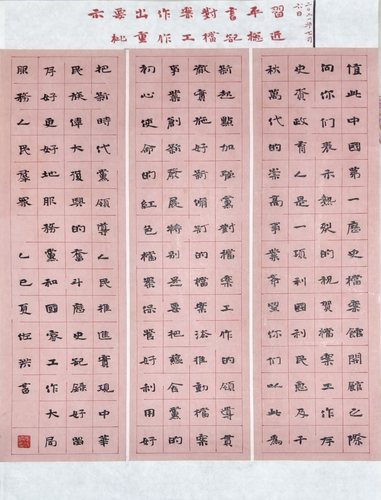 習近平總書記對檔案工作作出重要批示
二〇二一年七月六日
值此中國第一歷史檔案館開館之際
向你們表示熱烈的祝賀檔案工作存
史資政育人是一項利國利民惠及千
秋萬代的崇高事業希望你們以此為
新起點加強黨對檔案工作的領導貫
徹實施好新修訂的檔案法推動檔案
事業創新發展特別是要把蘊含黨的
初心使命的紅色檔案保管好利用好
把新時代黨領導人民推進實現中華
民族偉大復興的奮鬥歷史記錄好留
存好更好地服務黨和國家工作大局
服務人民羣眾 乙巳夏 書